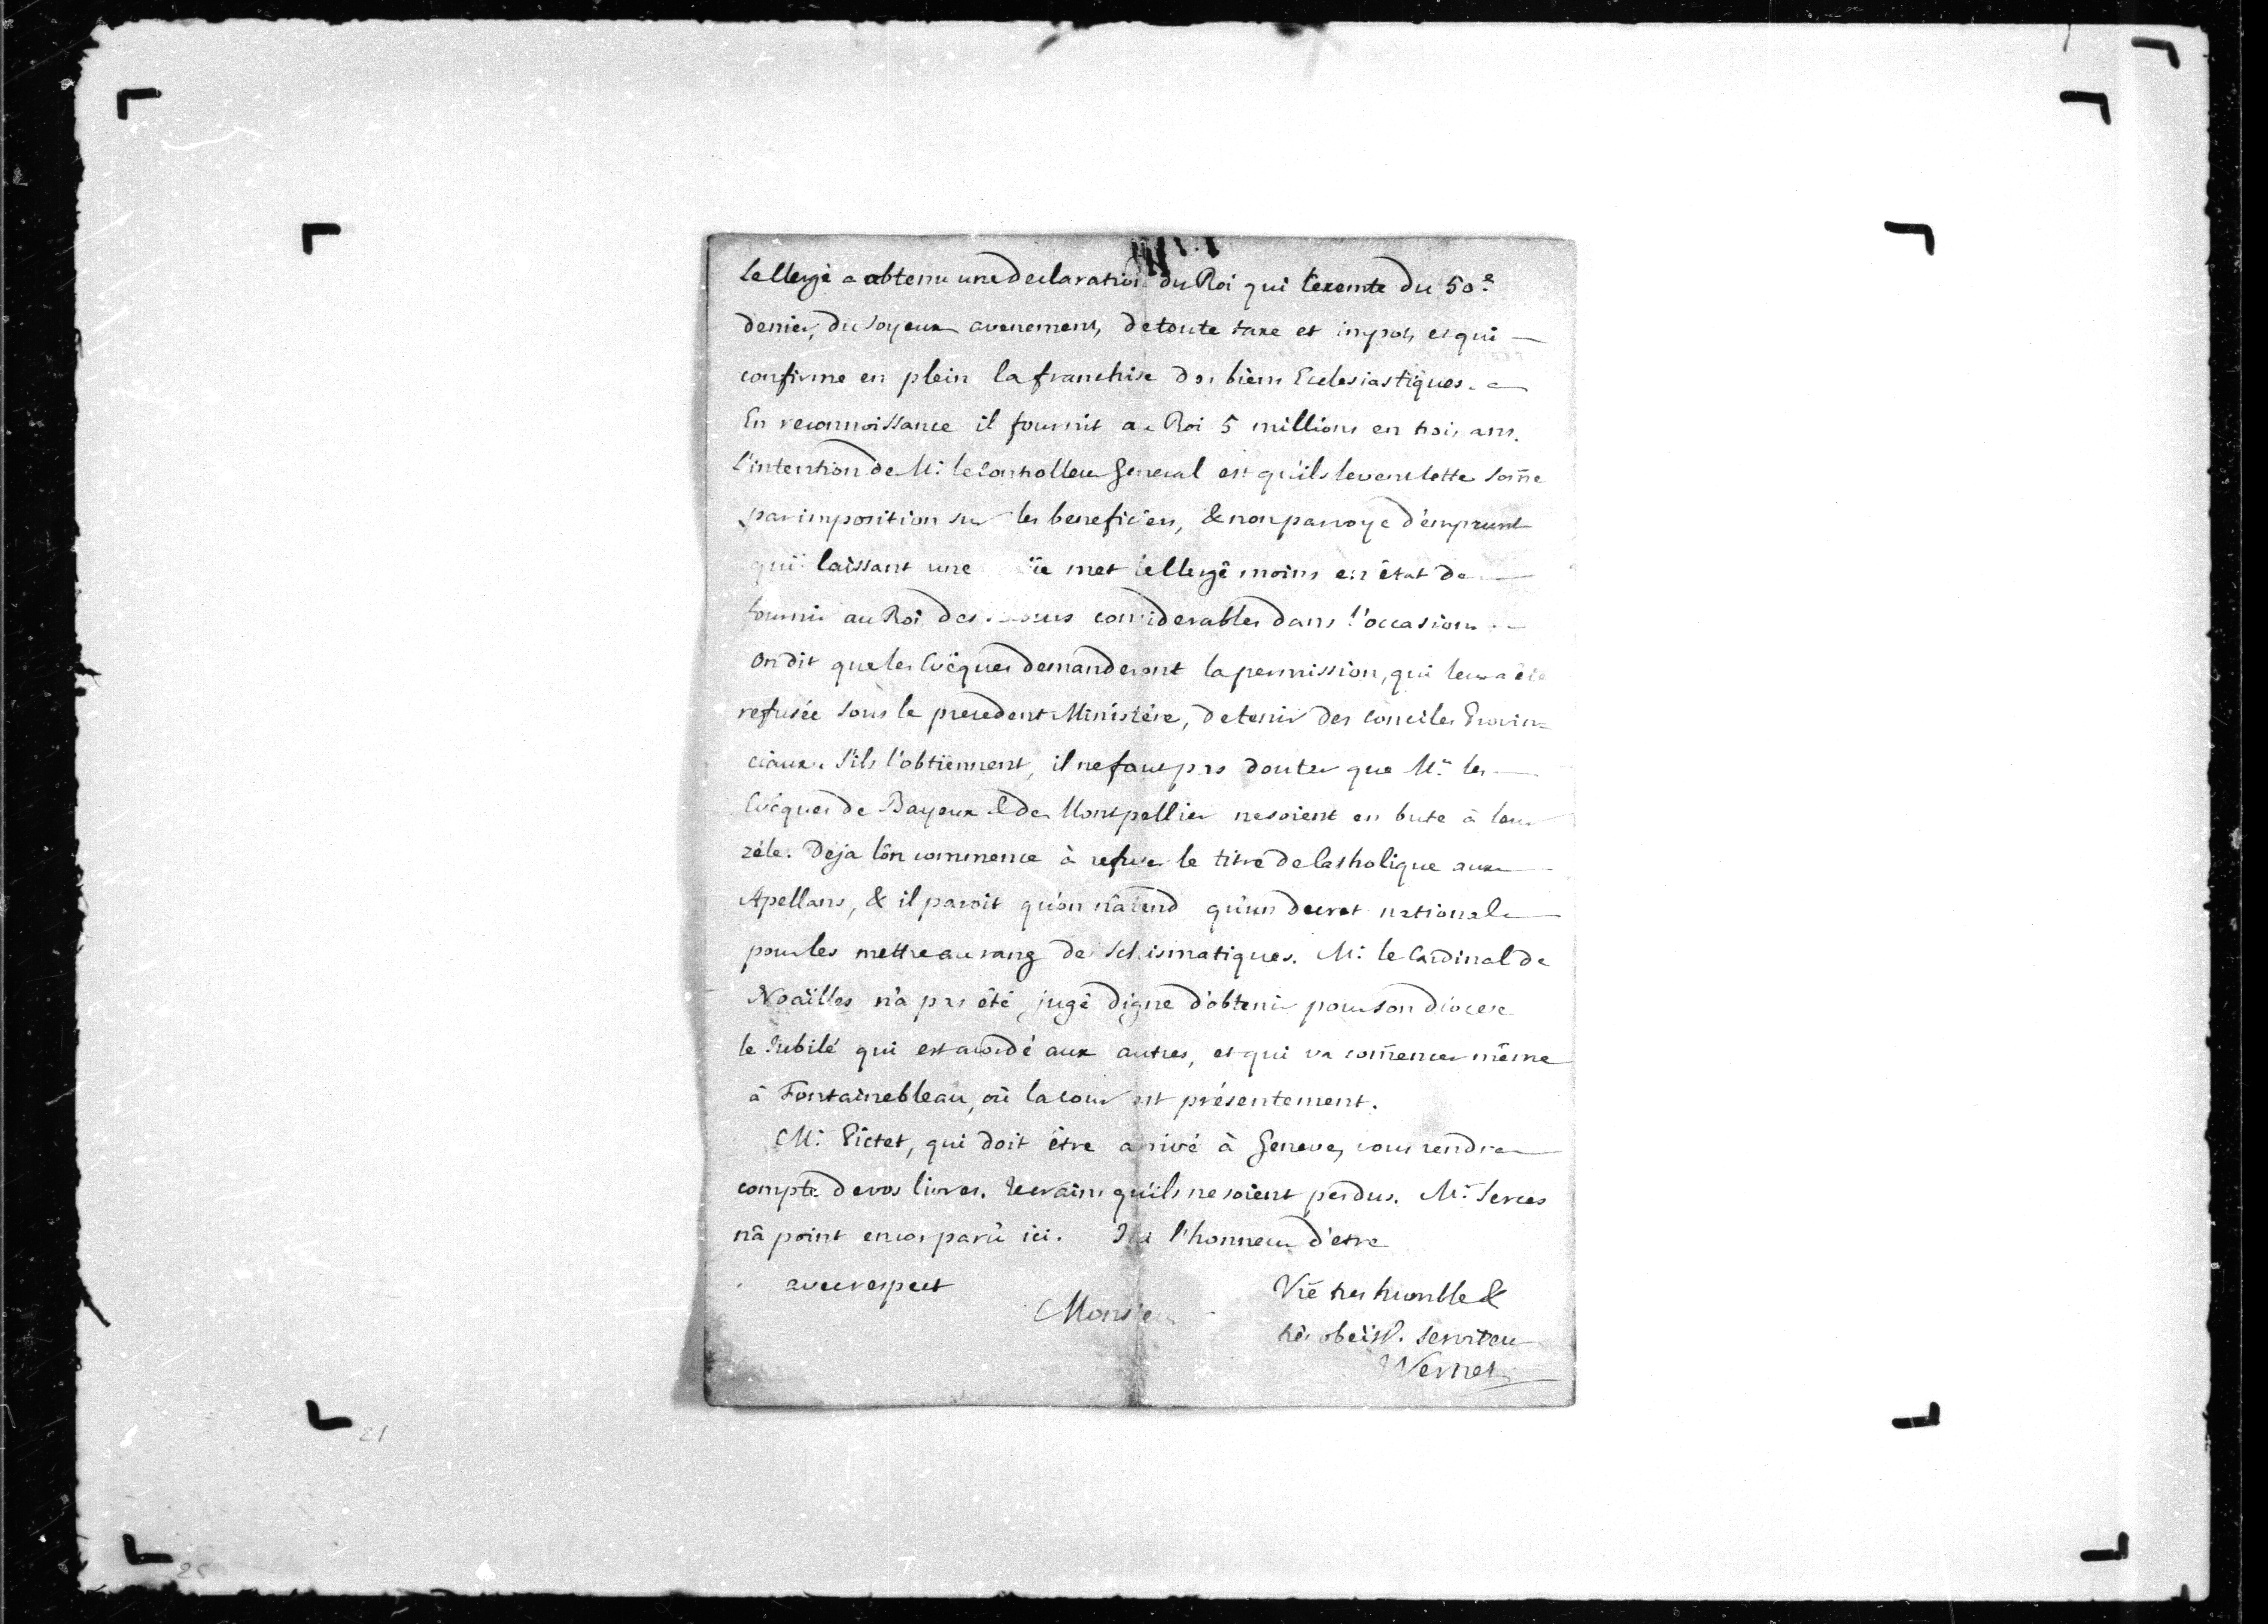 Le Clergé a obtenu une declaration du Roi qui l'exemte du 50.e
denier, du Joyeux avenement, de toute taxe et impôt, et qui
confirme en plein la franchise des biens Eclesiastiques.
En reconnoissance il fournit au Roi 5 millions en trois ans.
L'intention de Mr. le Controlleur General est qu'ils levent cette som̃e
par imposition sur les beneficiers, & non par voye d'emprunt
qui laissant une met le Clergé moins en état de
fournir au Roi des considerables dans l'occasion.
On dit que les Evêques demanderont la permission, qui leur a été
refusée sous le precedent Ministère, de tenir des Conciles Provin=
ciaux. S'ils l'obtiennent, il ne faut pas douter que Mrs. les
Evêques de Bayeux & de Montpellier ne soient en bute à leur
zéle. Deja l'on commence à refuser le titre de Catholique aux
Apellans, & il paroit qu'on n'atend qu'un decret national
pour les mettre au rang des Schismatiques. Mr. le Cardinal de
Noailles n'a pas été jugé digne d'obtenir pour son diocese
le Jubilé qui est acordé aux autres, et qui va com̃encer même
à Fontainebleau, où la Cour est présentement.
Mr. Pictet, qui doit être arrivé à Geneve, vous rendra
compte de vos livres. Je crains qu'ils ne soient perdus. Mr. Serces
n'a point encor parû ici. J'ai l'honneur d'etre
avec respect
Monsieur
Vr̃e tres humble &
très obéiss.t serviteur
Vernet
21
25